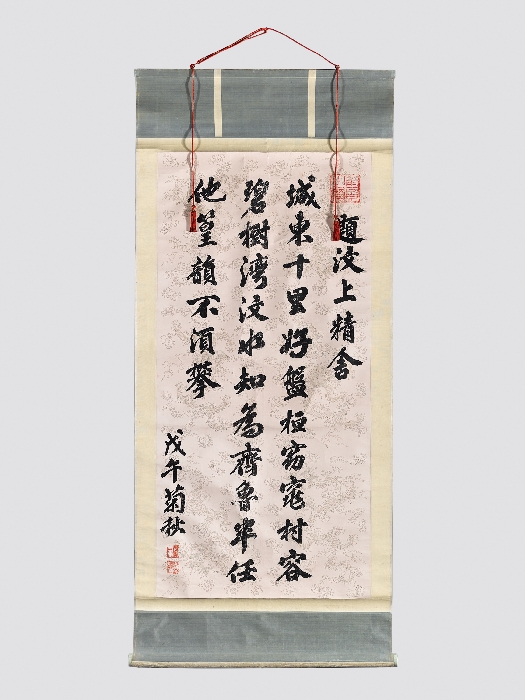 題汶上精舍
城東十里好盤桓窈窕村容
碧樹灣汶水知為齊魯任
他篁韻不須攀
戊午菊秋